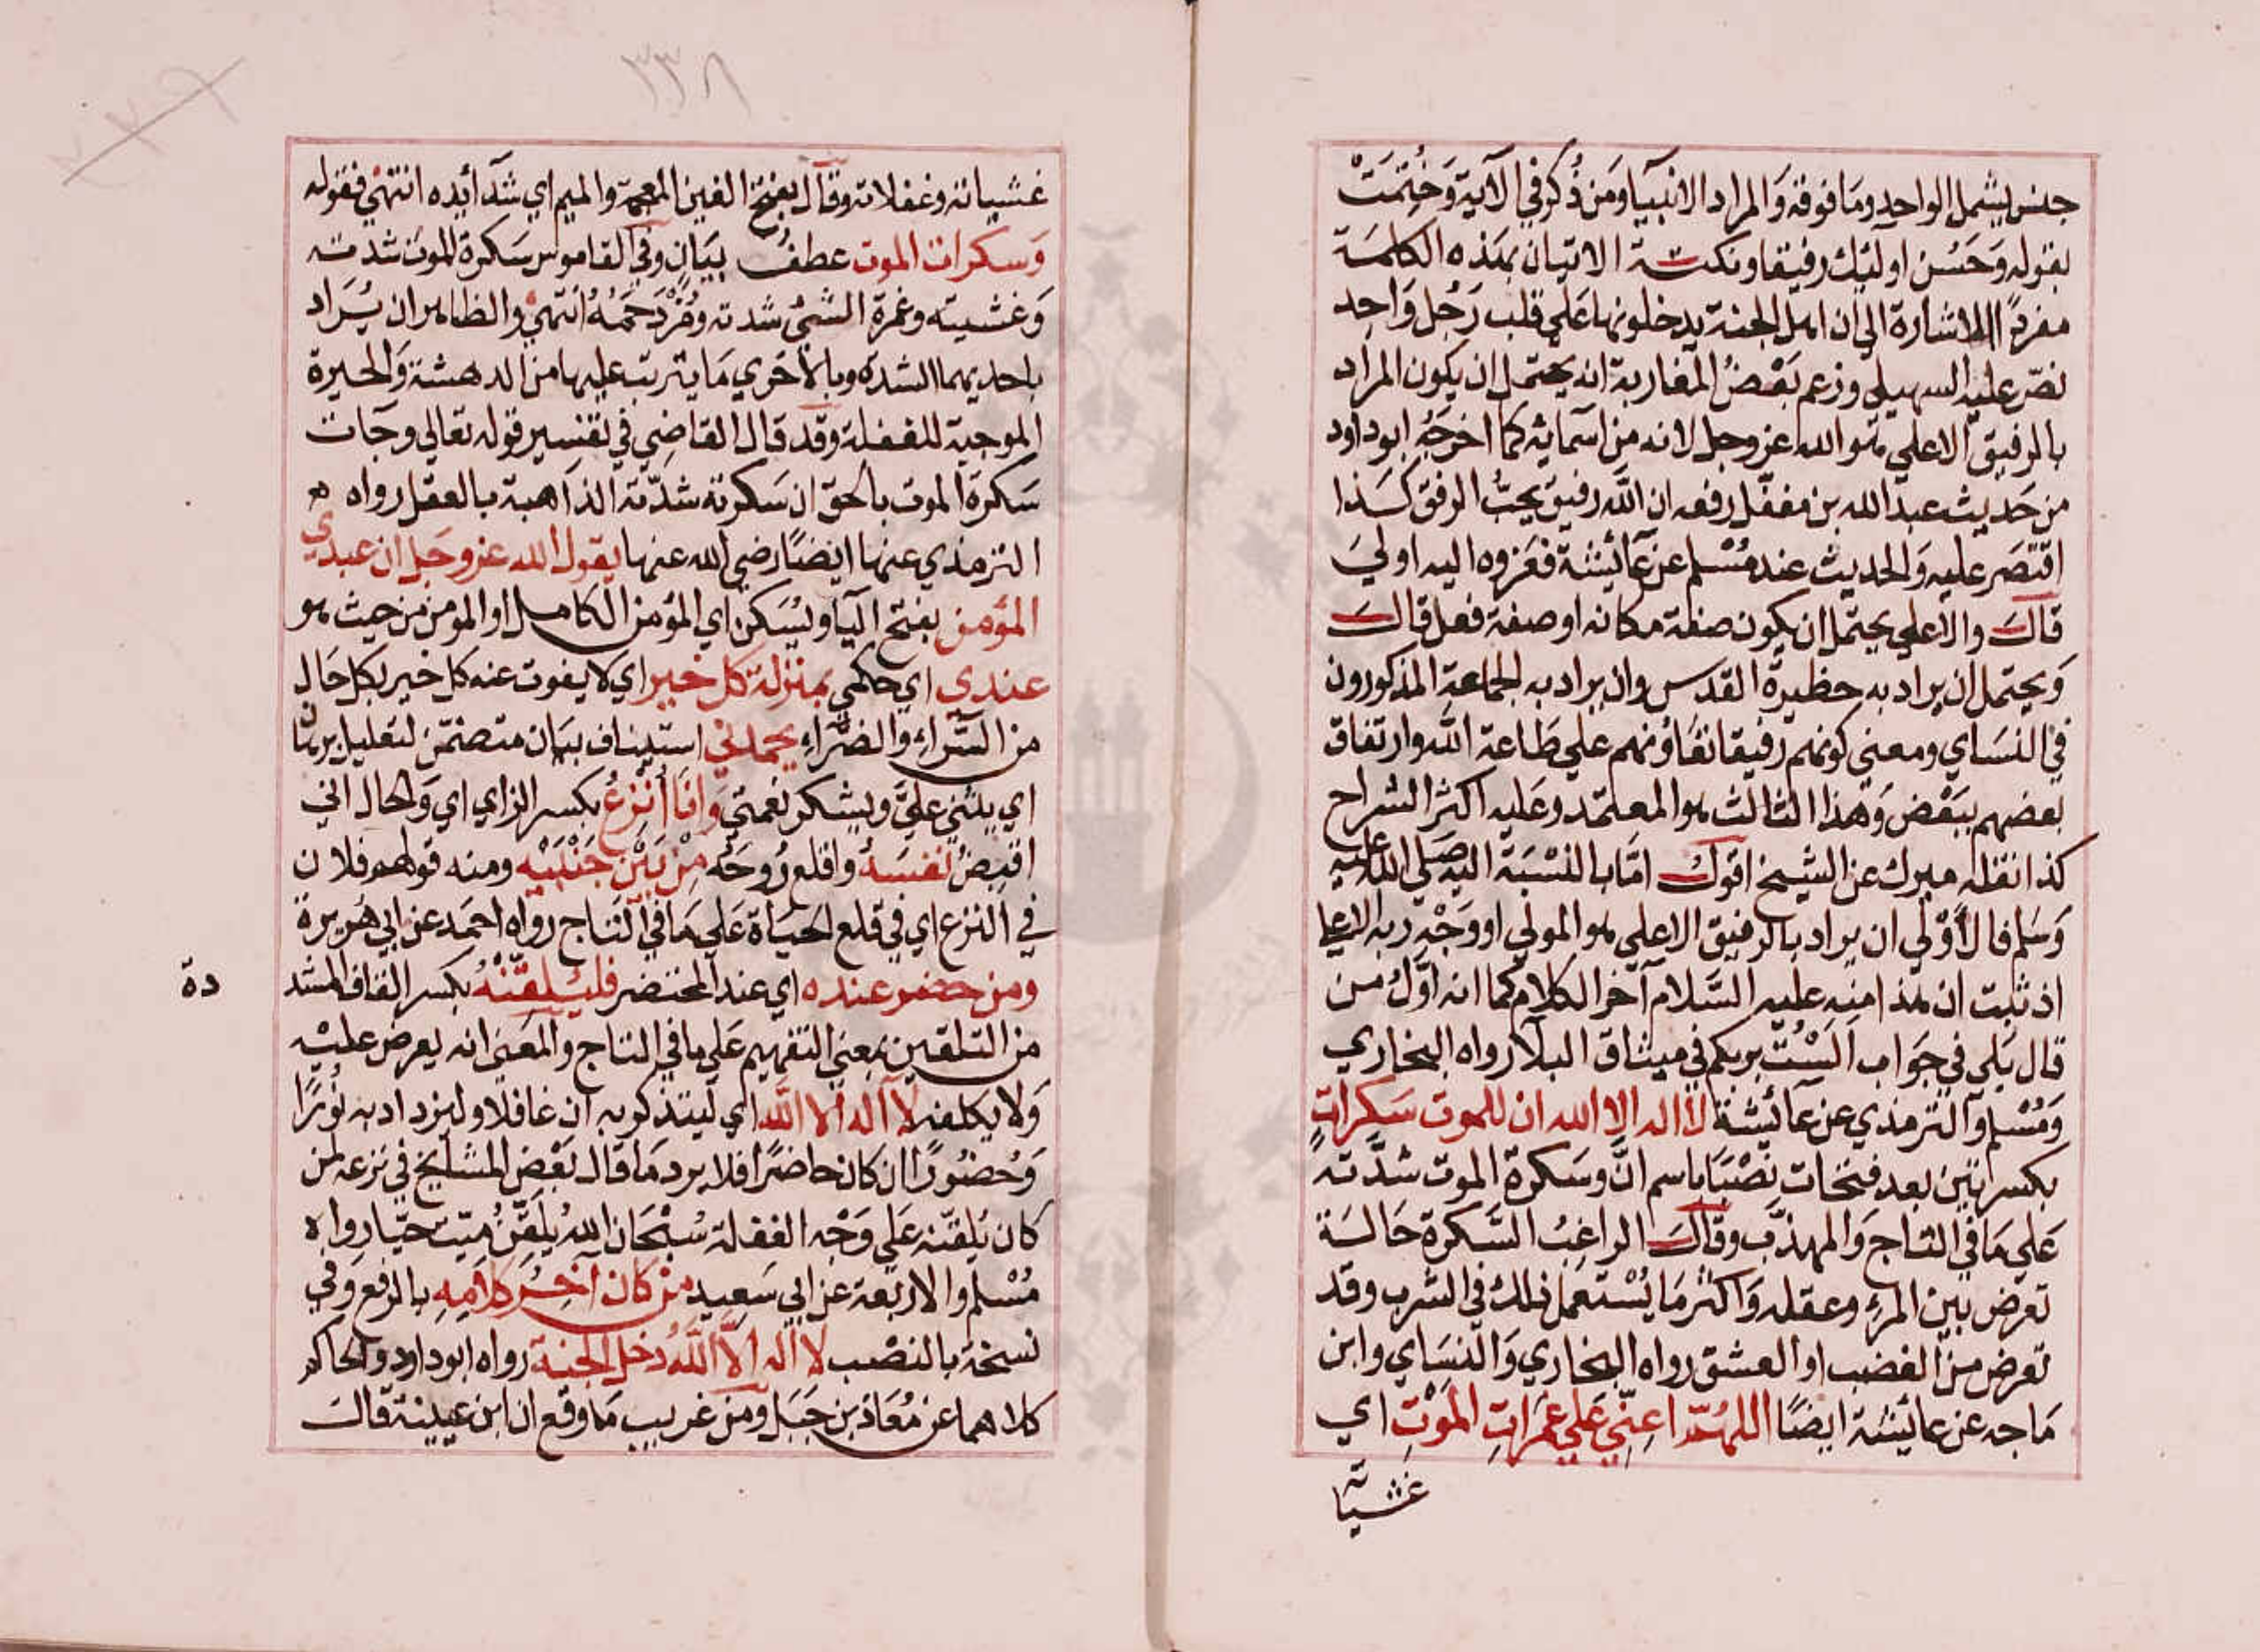 جنس يشمل الواحد وما فوقه والمراد الانبيا ومن ذكر في الآية وختمت
بقوله وحسن اولئك رفيقا ونكتة الاتيان بهذه الكلمة
مفردا الاشارة الي ان اهل الجنة يدخلونها علي قلب رجل واحد
نص عليه السهيلي وزعم بعض المغاربة انه يحتمل ان يكون المراد
بالرفيق الاعلي هو الله عز وجل لانه من اسمائه كما اخرجه ابو داود
من حديث عبد الله بن مغفل رفعه ان الله رفيق يحب الرفق كذا
اقتصر عليه والحديث عند مسلم عن عائشة فعزوه اليه اولي
قال والاعلي يحتمل ان يكون صفة مكانه او صفة فعل قال
ويحتمل ان يراد به حظيرة القدس وان يراد به الجماعة المذكورون
في النساي ومعني كونهم رفيقا تعاونهم علي طاعة الله وارتفاق
بعضهم ببعض وهذا الثالث هو المعتمد وعليه اكثر الشراح
كذا نقله ميرك عن الشيخ اقول اما بالنسبة اليه صلي الله عليه
وسلم فالأولي ان يراد بالرفيق الاعلي هو المولي او وجه ربه الاعلي
اذ ثبت ان هذا منه عليه السلام آخر الكلام كما انه اول من
قال بلي في جواب ألست بربكم في ميثاق البلا رواه البخاري
ومسلم والترمذي عن عائشة لا اله الا الله ان للموت سكرات
بكسرتين بعد فتحات نصبا باسم ان وسكرة الموت شدته
علي ما في التاج والمهذب وقال الراغب السكرة حالة
تعرض بين المرء وعقله واكثر ما يستعمل ذلك في الشرب وقد
تعرض من الغضب او العشق رواه البخاري والنساي وابن
ماجه عن عائشة ايضا اللهم اعني علي غمرات الموت اي
غشياته
٣٣٨
غشياته وغفلاته وقال بفتح الغين المعجمة والميم اي شدائده انتهي فقوله
وسكرات الموت عطف بيان وفي القاموس سكرة الموت شدته
وغشيته وغمرة الشئ شدته ومزدحمه انتهي والظاهر ان يراد
باحديهما الشدة وبالأخري ما يترتب عليها من الدهشة والحيرة
الموجبة للغفلة وقد قال القاضي في تفسير قوله تعالي وجات
سكرة الموت بالحق ان سكرته شدته الذاهبة بالعقل رواه
الترمذي عنها ايضا رضي الله عنها يقول الله عز وجل ان عبدي
المؤمن بفتح اليا ويسكن اي المؤمن الكامل او المومن من حيث هو
عندي اي حكمي بمنزلة كل خير اي لا يفوت عنه كل خير بكل حال
من السراء والضراء يحمدني استيناف بيان متضمن لتعليل برهان
اي يثني علي ويشكر نعمتي وانا أنزع بكسر الزاي اي والحال اني
اقبض نفسه واقلع روحه من بين جنبيه ومنه قولهم فلان
في النزع اي في قلع الحياة علي ما في التاج رواه احمد عن ابي هريرة
ومن حضر عنده اي عند المحتضر فليلقنه بكسر القاف المشد
دة
من التلقين بمعني التفهيم علي ما في التاج والمعني انه يعرض عليه
ولا يكلفه لا اله الا الله اي ليتذكر به ان غافلا وليزداد به نورا
وحضورا ان كان حاضرا فلا يرد ما قال بعض المشايخ في نزعه لمن
كان يلقنه علي وجه الغفلة سبحان الله يلقن ميت حيا رواه
مسلم والاربعة عن ابي سعيد من كان آخر كلامه بالرفع وفي
نسخة بالنصب لا اله الا الله دخل الجنة رواه ابو داود والحاكم
كلاهما عن معاذ بن جبل ومن غريب ما وقع ان ابن عيينة قال